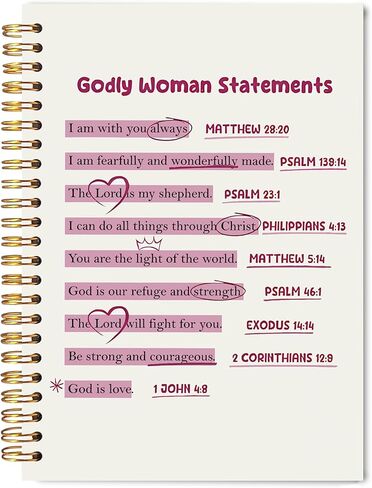 Godly Woman Statements
I am with you always MATTHEW 28:20
I am fearfully and wonderfully made. PSALM 139:14
The Lord is my shepherd. PSALM 23:1
I can do all things through Christ. PHILIPPIANS 4:13
You are the light of the world. MATTHEW 5:14
God is our refuge and strength. PSALM 46:1
The Lord will fight for you. EXODUS 14:14
Be strong and courageous. 2 CORINTHIANS 12:9
* God is love. 1 JOHN 4:8